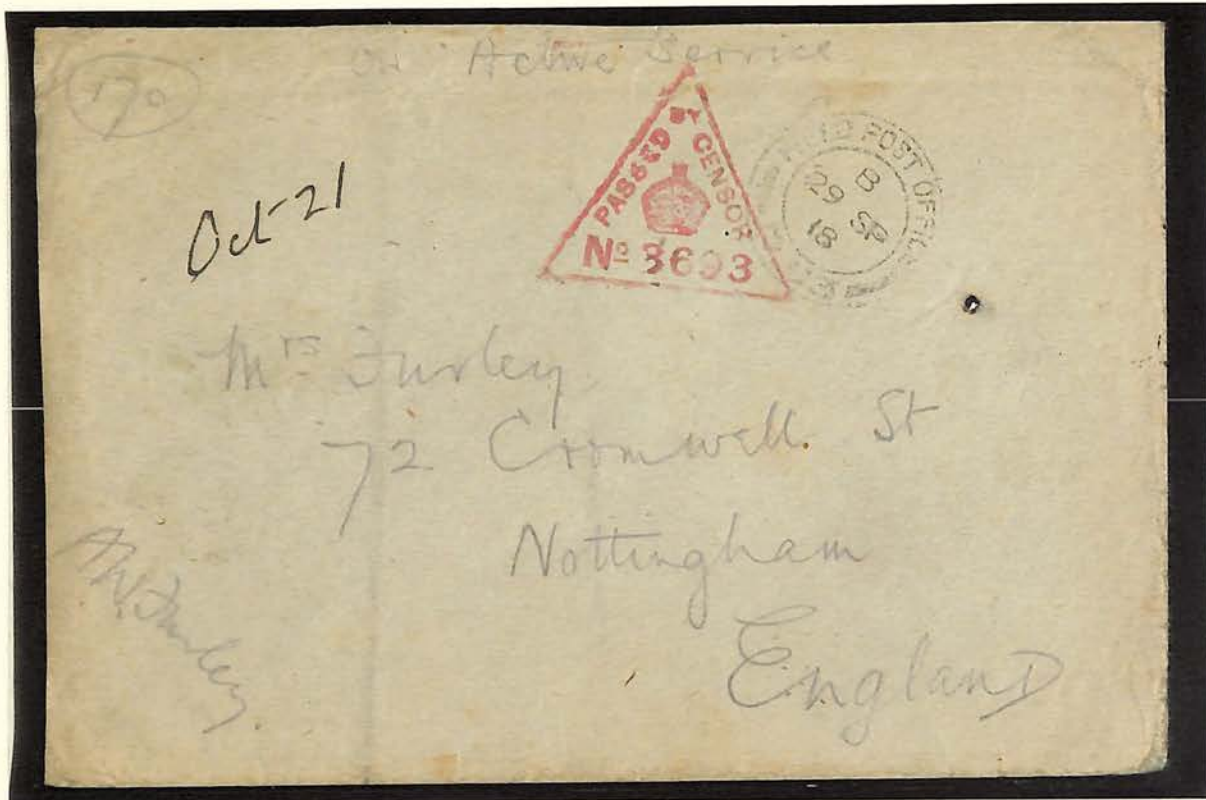 On Active Service
170
PASSED BY CENSOR
No 3693
FIELD POST OFFICE
B
29 SP
18
Oct 21
Mrs Furley
72 Cromwell St
Nottingham
England
Furley